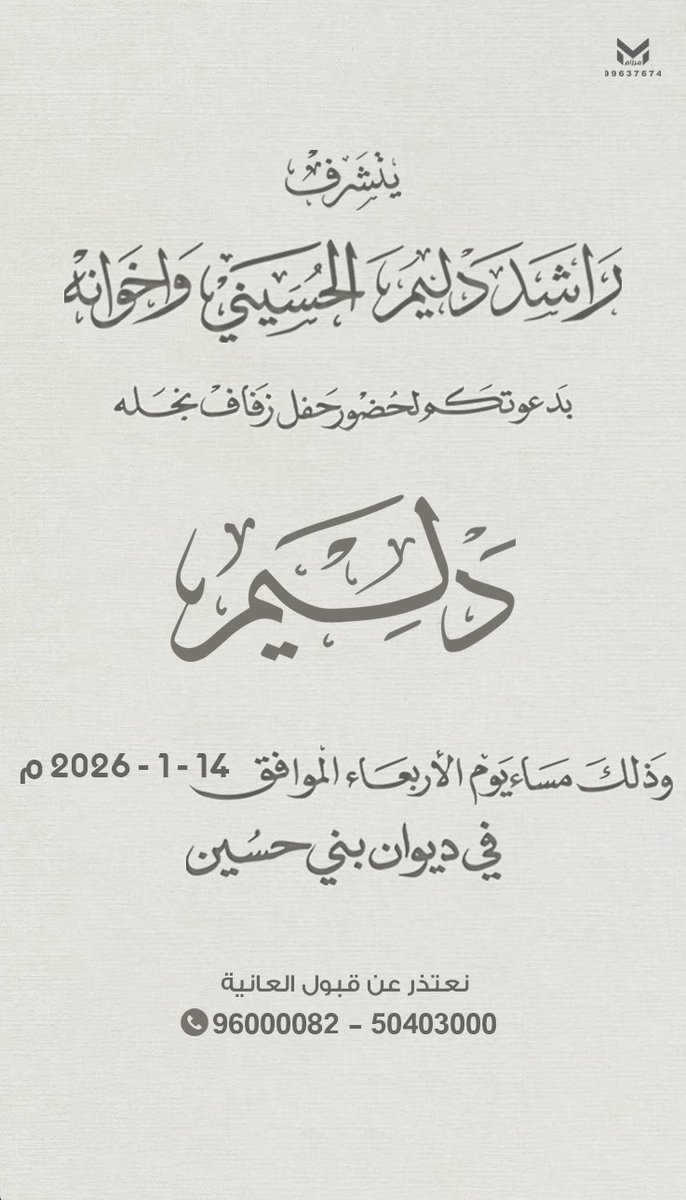 مرزام
99637674
يتشرف
راشد دليم الحسيني واخوانه
بدعوتكم لحضور حفل زفاف نجله
دليم
وذلك مساء يوم الأربعاء الموافق 14 - 1 - 2026 م
في ديوان بني حسين
نعتذر عن قبول العانية
96000082 - 50403000